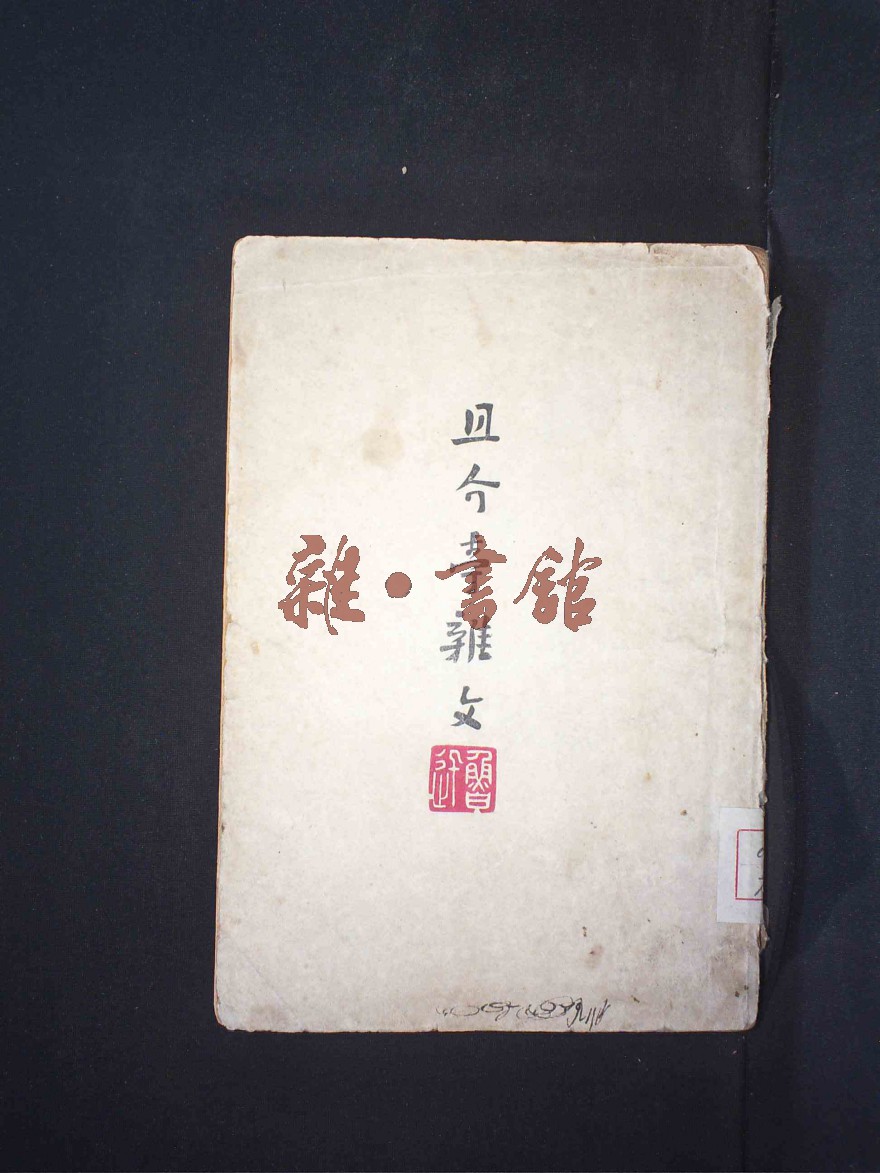 且介亭雜文
魯迅
雜·書館